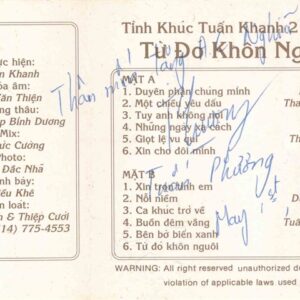 Tình Khúc Tuấn Khanh 2
Từ Đó Khôn Ng
ực hiện:
n Khanh
òa âm:
Văn Thiện
ng thâu:
p Bình Dương
Mix:
húc Cường
Photo:
Đắc Nhã
nh bày:
iểu Khê
n loát:
n & Thiệp Cưới
14) 775-4553
MẶT A
1. Duyên phận chúng mình
2. Một chiều yêu dấu
3. Tuy anh không nói
4. Những ngày xa cách
5. Giọt lệ vu quy
6. Xin cho đôi mình
MẶT B
1. Xin trọn tình em
2. Nỗi niềm
3. Ca khúc trở về
4. Buồn đêm vắng
5. Bên bờ biển xanh
6. Từ đó khôn nguôi
Thân mến tặng
Phương
May
WARNING: All right reserved unauthorized d
violation of applicable laws used